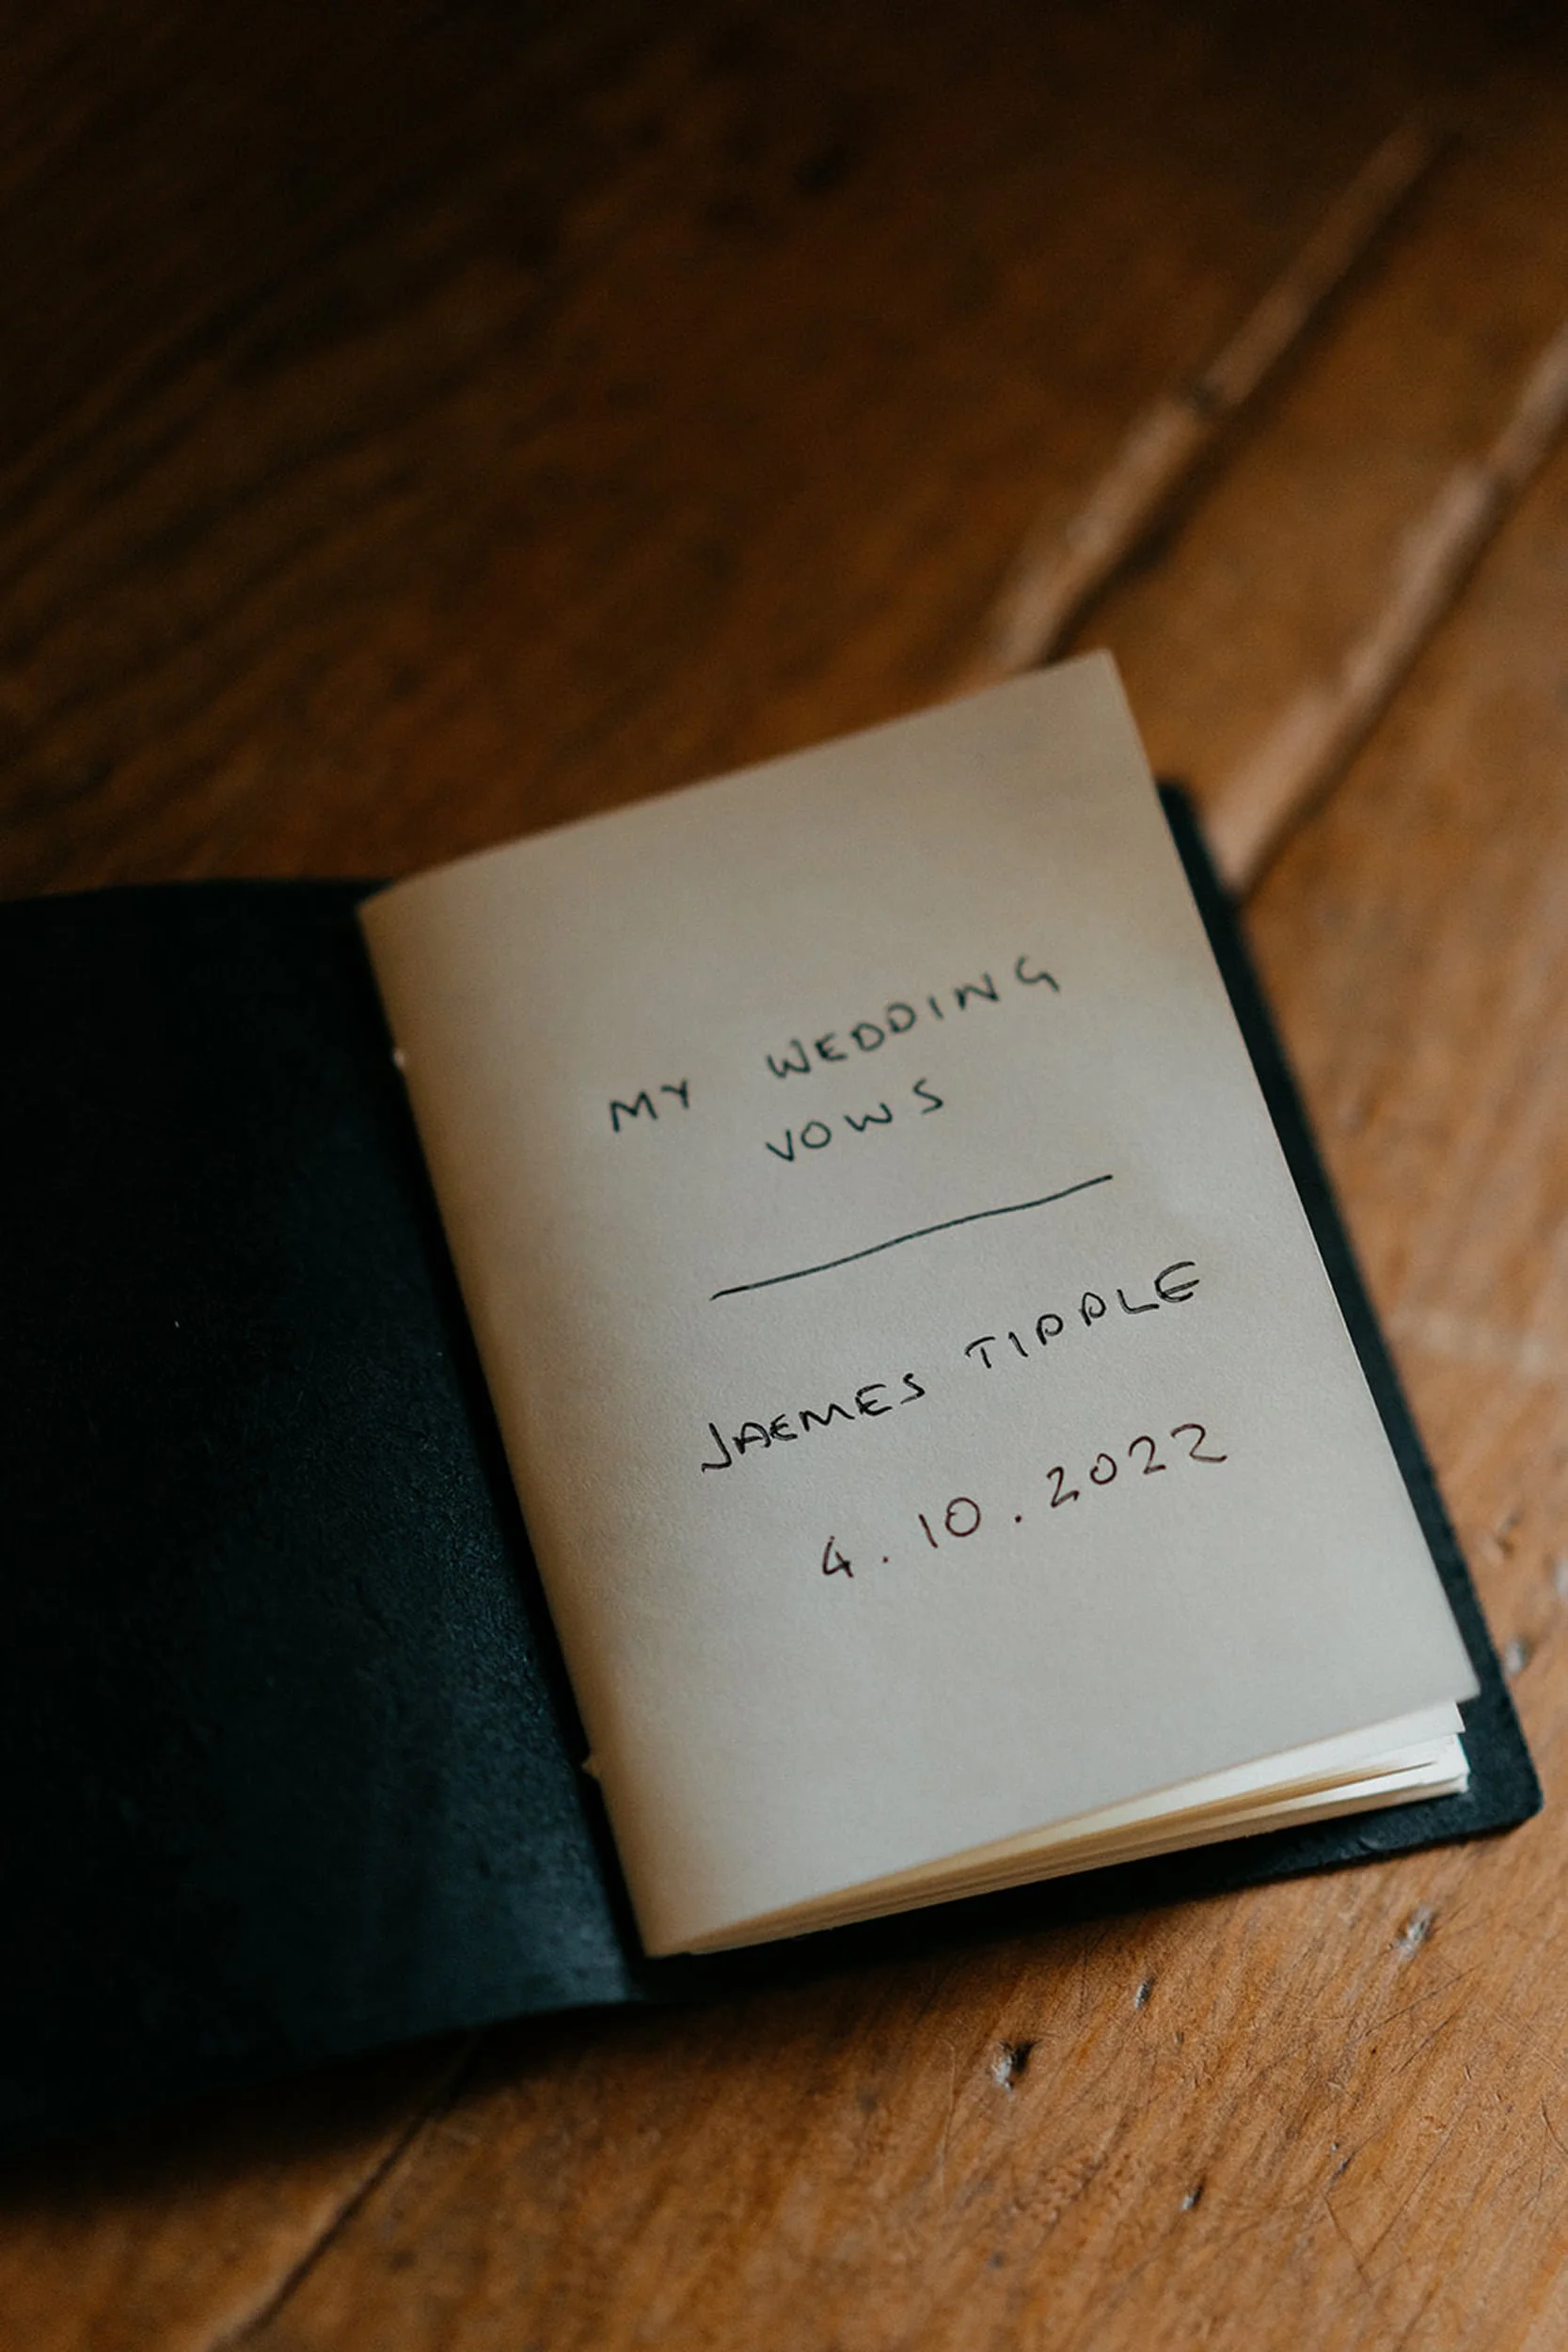 MY WEDDING
VOWS
JAEMES TIPPLE
4.10.2022